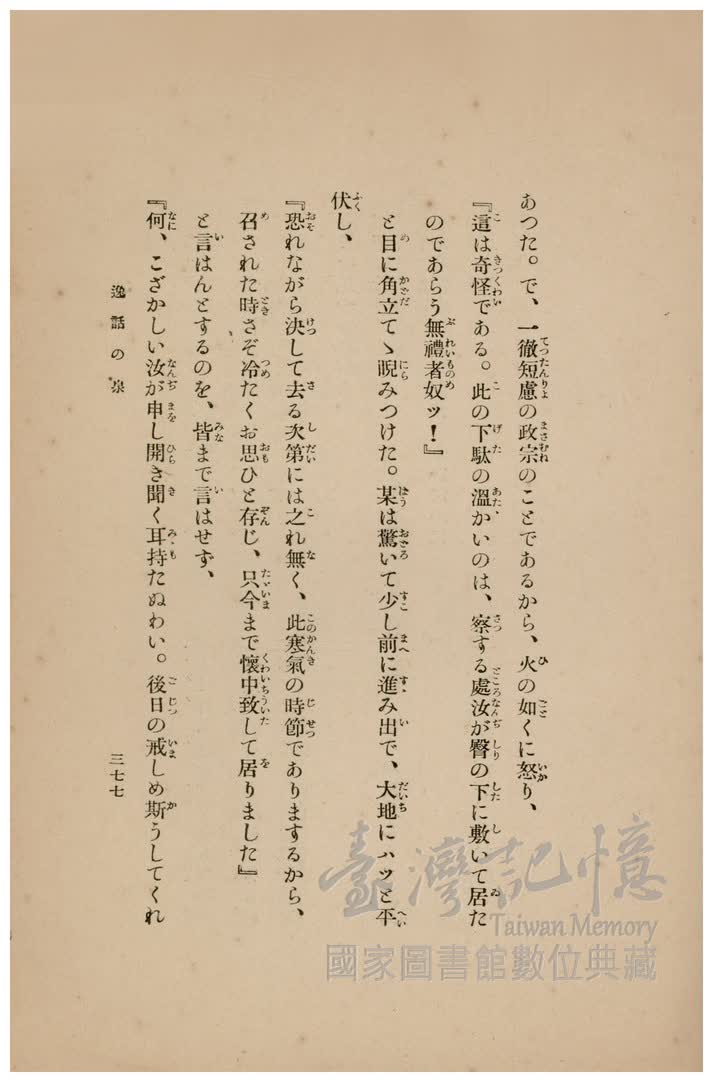 あつた。で、一徹短慮の政宗のことであるから、火の如くに怒り、
『這は奇怪である。此の下駄の溫かいのは、察する處汝が臀の下に敷いて居た
のであらう無禮者奴ッ！』
と目に角立てゝ睨みつけた。某は驚いて少し前に進み出で、大地にハッと平
伏し、
『恐れながら決して去る次第には之れ無く、此寒氣の時節でありまするから、
召された時さぞ冷たくお思ひと存じ、只今まで懷中致して居りました』
と言はんとするのを、皆まで言はせず、
『何、こざかしい汝が申し開き聞く耳持たぬわい。後日の戒しめ斯うしてくれ
逸話の泉
三七七
臺灣記憶
Taiwan Memory
國家圖書館數位典藏